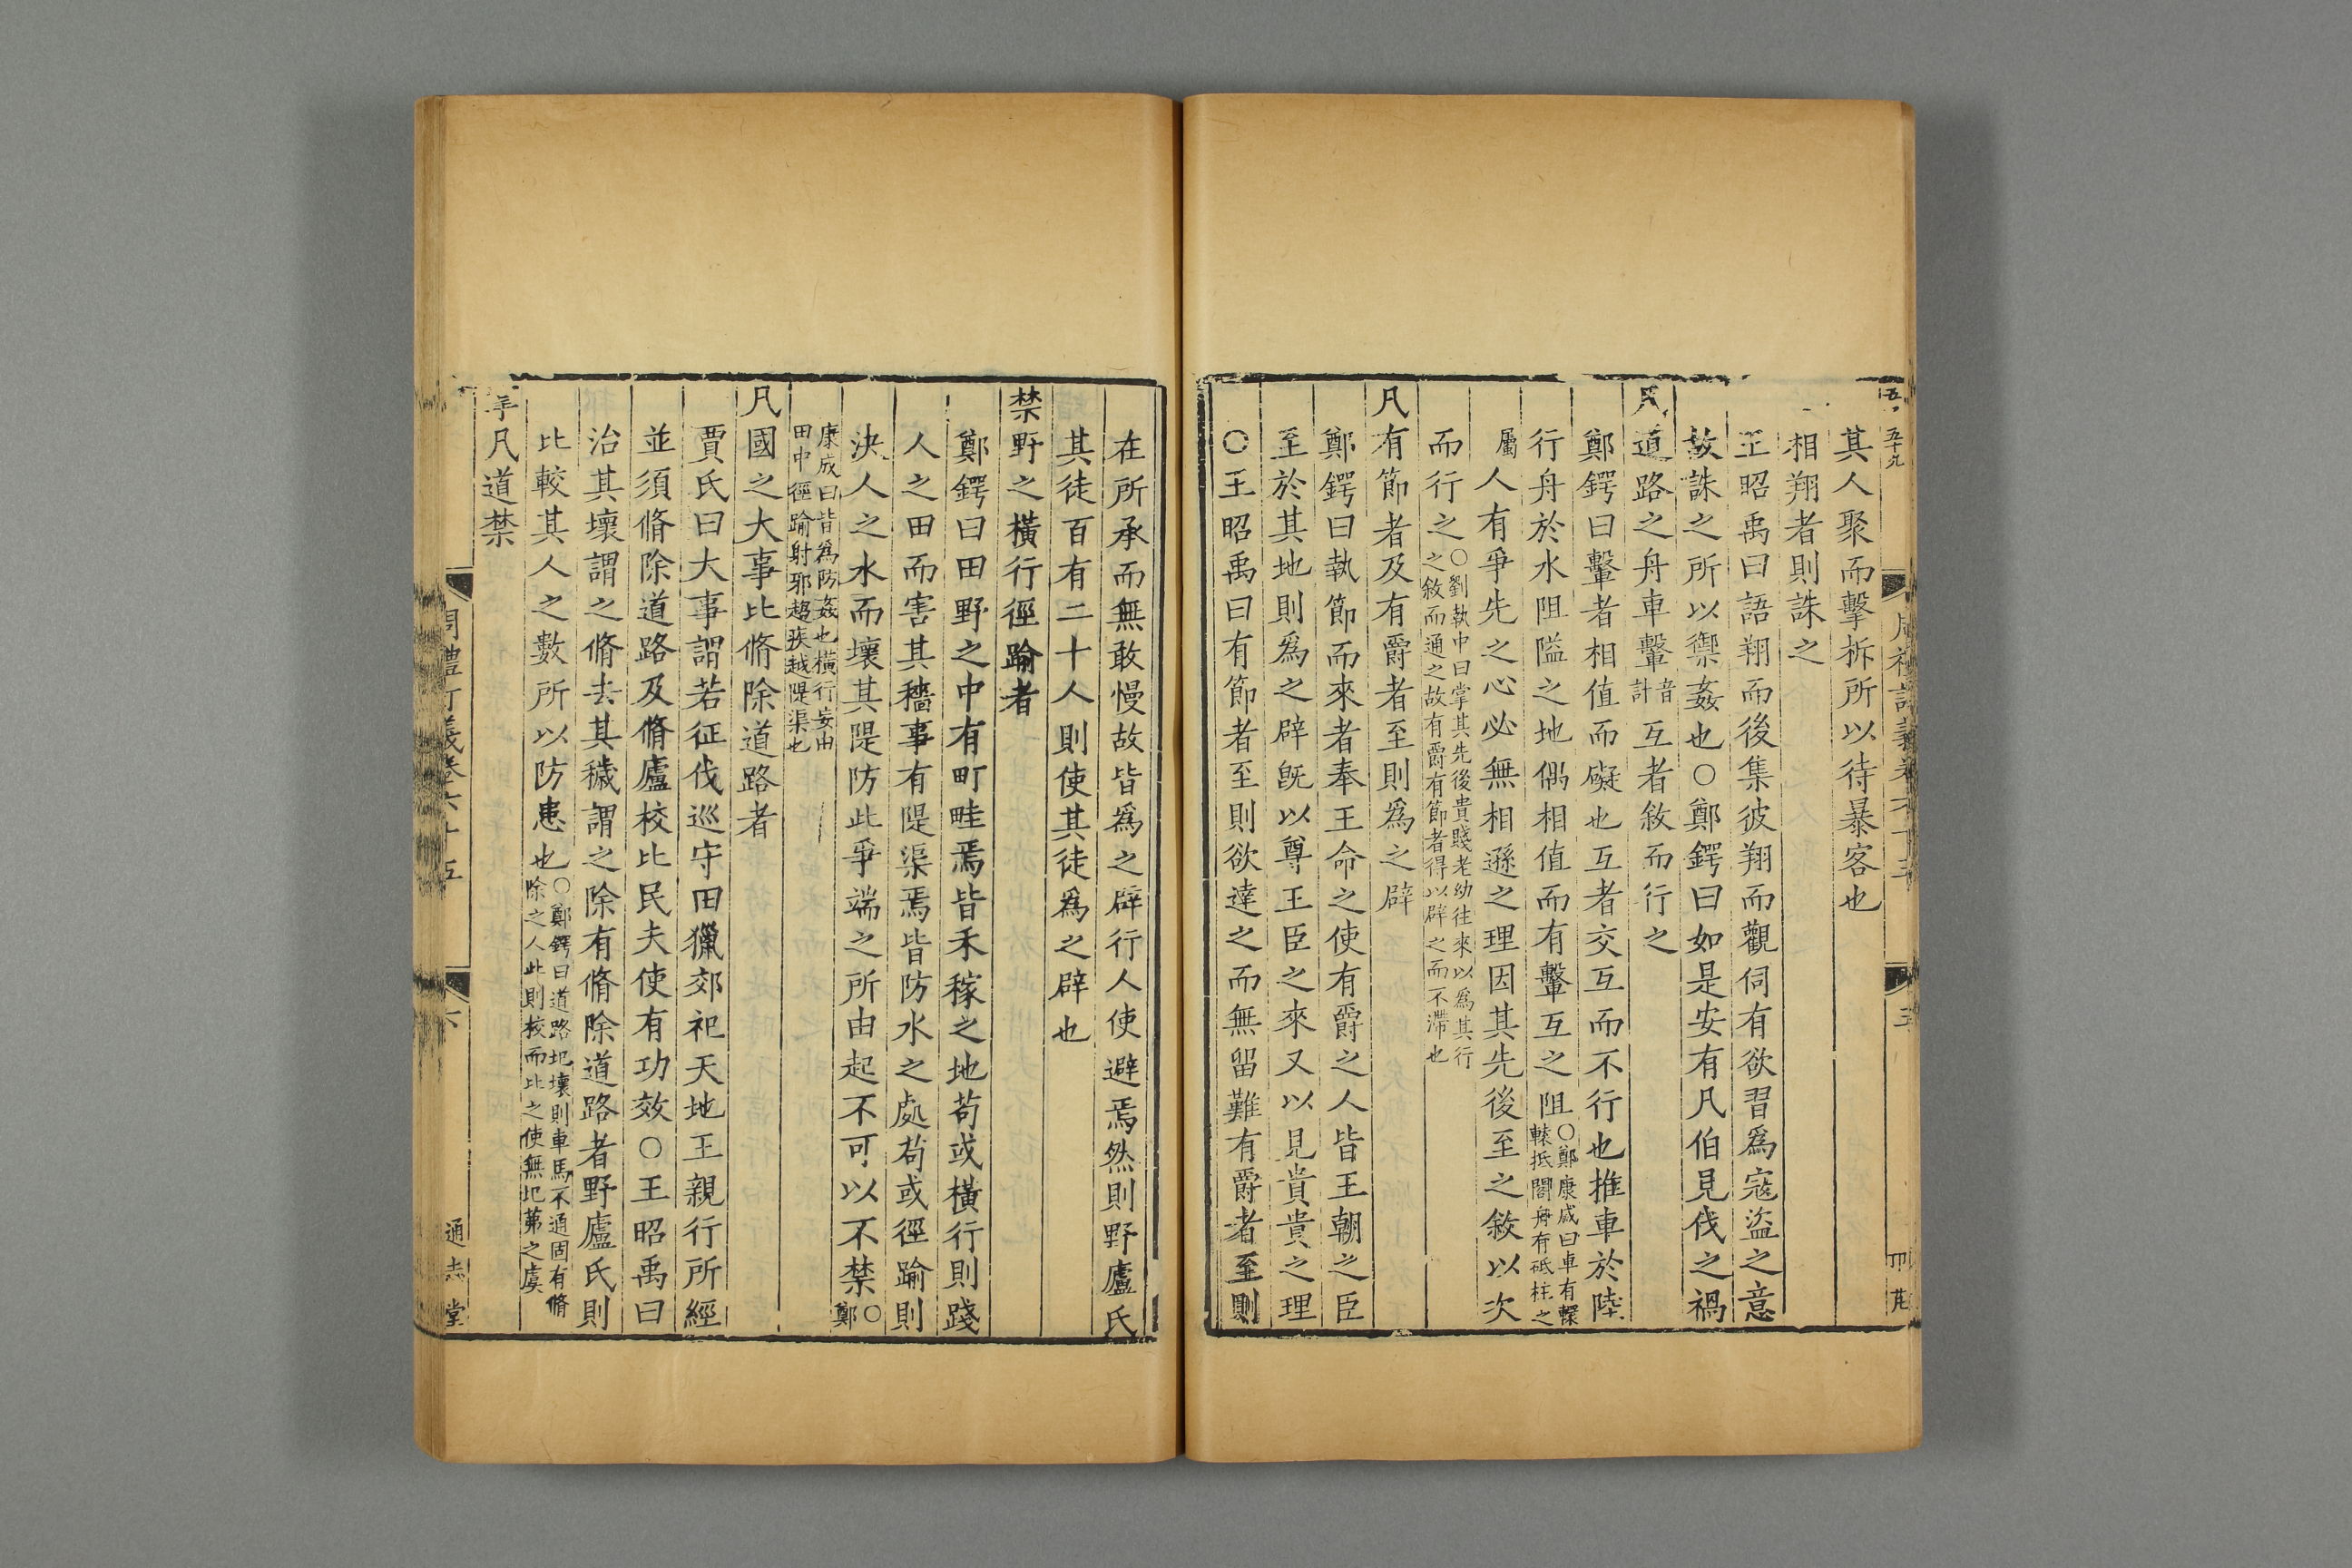 五十九
其人聚而擊柝所以待暴客也
相翔者則誅之
王昭禹曰語翔而後集彼翔而觀伺有欲習為寇盜之意
故誅之所以禦姦也○鄭鍔曰如是安有凡伯見伐之禍
凡道路之舟車轚音計互者敘而行之
鄭鍔曰轚者相值而礙也互者交互而不行也推車於陸
行舟於水阻隘之地偶相值而有轚互之阻○鄭康成曰車有轘轅抵閣舟有砥柱之
屬人有爭先之心必無相遜之理因其先後至之敘以次
而行之○劉執中曰掌其先後貴賤老幼往來以為其行之敘而通之故有爵有節者得以辟之而不滯也
凡有節者及有爵者至則為之辟
鄭鍔曰執節而來者奉王命之使有爵之人皆王朝之臣
至於其地則為之辟旣以尊王臣之來又以見貴貴之理
○王昭禹曰有節者至則欲達之而無留難有爵者至則
在所承而無敢慢故皆為之辟行人使避焉然則野廬氏
其徒百有二十人則使其徒為之辟也
禁野之橫行徑踰者
鄭鍔曰田野之中有町畦焉皆禾稼之地茍或橫行則踐
人之田而害其穡事有隄渠焉皆防水之處茍或徑踰則
決人之水而壞其隄防此爭端之所由起不可以不禁○鄭
康成曰皆為防姦也橫行妄由田中徑踰射邪趨疾越隄渠也
凡國之大事比脩除道路者
賈氏曰大事謂若征伐巡守田獵郊祀天地王親行所經
並須脩除道路及脩廬校比民夫使有功效○王昭禹曰
治其壞謂之脩去其穢謂之除有脩除道路者野廬氏則
比較其人之數所以防患也○鄭鍔曰道路圯壞則車馬不通固有脩除之人此則校而比之使無圯茀之虞
凡道禁
周禮訂義卷六十五
六
通志堂